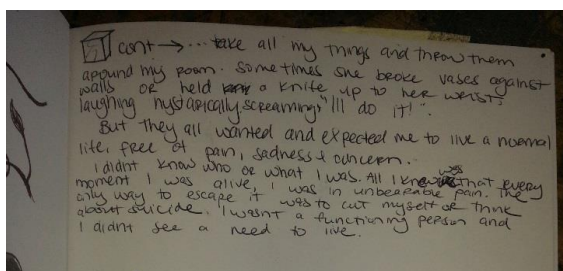 cont → ... take all my things and throw them
around my room. sometimes she broke vases against
walls or held a knife up to her wrist,
laughing hystarically, screaming "Ill do it!".
But they all wanted and expected me to live a normal
life, free of pain, sadness & concern.
I didnt know who or what I was. All I knew was that every
moment I was alive, I was in unbearable pain. The
only way to escape it was to cut myself or think
about suicide. I wasnt a functioning person and
I didnt see a need to live.